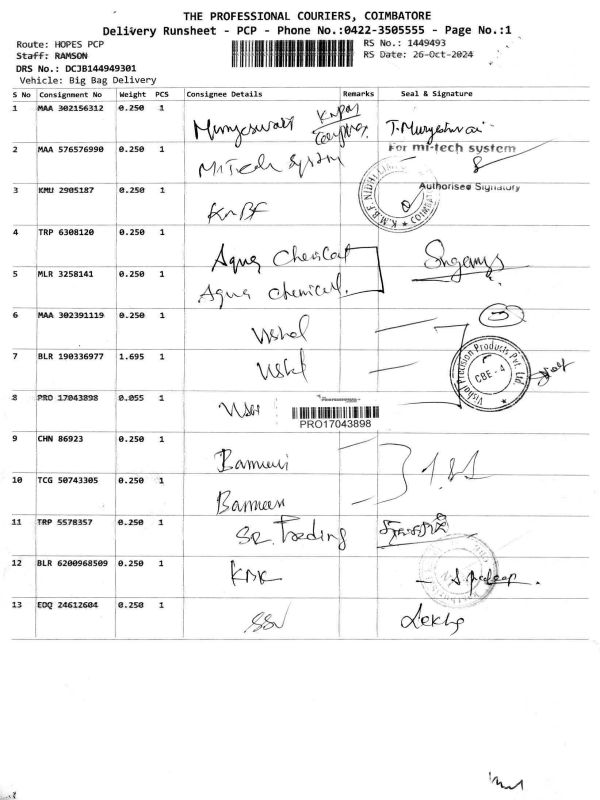 THE PROFESSIONAL COURIERS, COIMBATORE
Delivery Runsheet - PCP - Phone No.:0422-3505555 - Page No.:1
Route: HOPES PCP
Staff: RAMSON
DRS No.: DCJB144949301
Vehicle: Big Bag Delivery
RS No.: 1449493
RS Date: 26-Oct-2024
S No Consignment No Weight PCS Consignee Details Remarks Seal & Signature
1 MAA 302156312 0.250 1
2 MAA 576576990 0.250 1 MiTech System For mi-tech system
Authorised Signatory
3 KMU 2905187 0.250 1
4 TRP 6308120 0.250 1 Aqua Chemical
5 MLR 3258141 0.250 1 Aqua chemical.
6 MAA 302391119 0.250 1 Vishal
7 BLR 190336977 1.695 1 Vishal
Vishal Precision Products Pvt. Ltd.
CBE - 4
8 PRO 17043898 0.055 1
PRO17043898
9 CHN 86923 0.250 1
10 TCG 50743305 0.250 1
11 TRP 5578357 0.250 1 SR Trading
12 BLR 6200968509 0.250 1
13 EDQ 24612604 0.250 1 SSV Lekha